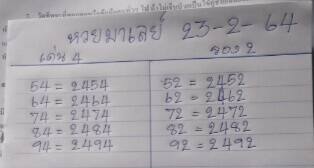 หวยมาเลย์ 23-2-64
เด่น 4
รอง 2
54 = 2454
64 = 2464
74 = 2474
84 = 2484
94 = 2494
52 = 2452
62 = 2462
72 = 2472
82 = 2482
92 = 2492